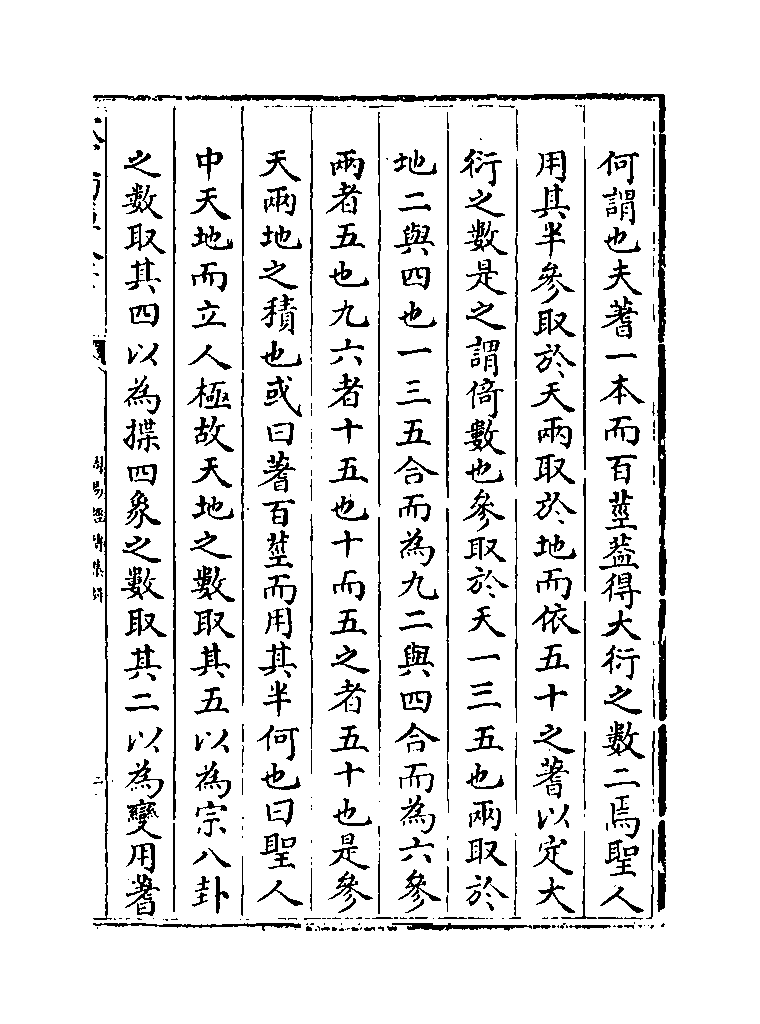 何謂也夫蓍一本而百莖葢得大衍之數二焉聖人
用其半參取於天兩取於地而依五十之蓍以定大
衍之數是之謂倚數也參取於天一三五也兩取於
地二與四也一三五合而為九二與四合而為六參
兩者五也九六者十五也十而五之者五十也是參
天兩地之積也或曰蓍百莖而用其半何也曰聖人
中天地而立人極故天地之數取其五以為宗八卦
之數取其四以為揲四象之數取其二以為變用蓍